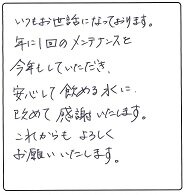 いつもお世話になっております。
年に1回のメンテナンスを
今年もしていただき、
安心して飲める水に
改めて感謝いたします。
これからもよろしく
お願いいたします。